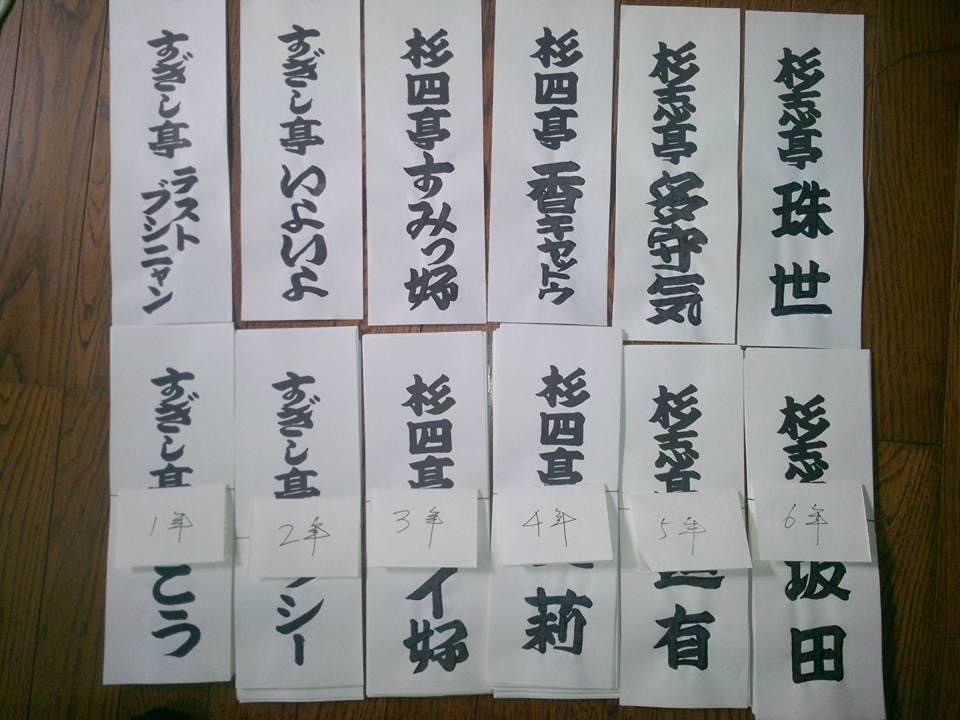 すぎし亭 ラスト
ブシニャン
すぎし亭 いよいよ
杉四亭 すみっ婦
杉四亭 香キャットウ
杉志亭 安守気
杉志亭 珠世
すぎし亭
こう
1年
すぎし亭
シー
2年
杉四亭
イ婦
3年
杉四亭
莉
4年
杉志亭
有
5年
杉志
坂田
6年